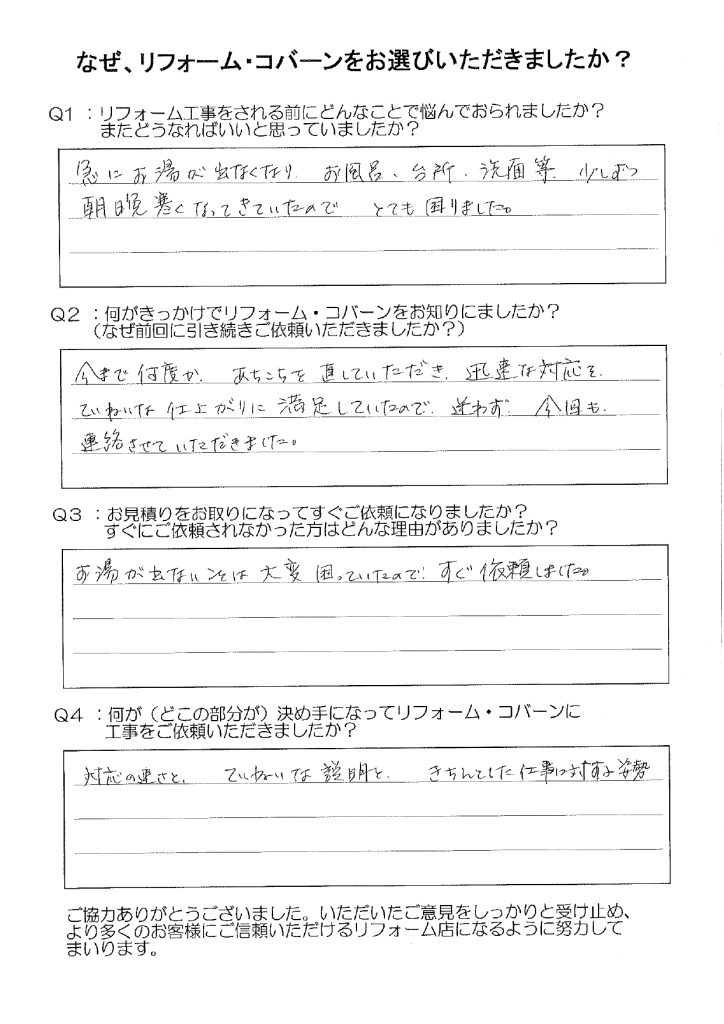 なぜ、リフォーム・コバーンをお選びいただきましたか？
Q1 ：リフォーム工事をされる前にどんなことで悩んでおられましたか？
またどうなればいいと思っていましたか？
急にお湯が出なくなり、お風呂、台所、洗面等、少しずつ
朝晩寒くなってきていたので とても困りました。
Q2 ：何がきっかけでリフォーム・コバーンをお知りにましたか？
（なぜ前回に引き続きご依頼いただきましたか？）
今まで何度か、あちこちを直していただき、迅速な対応と、
ていねいな仕上がりに満足していたので、迷わず、今回も、
連絡させていただきました。
Q3 ：お見積りをお取りになってすぐご依頼になりましたか？
すぐにご依頼されなかった方はどんな理由がありましたか？
お湯が出ないことは大変困っていたので、すぐ依頼しました。
Q4 ：何が（どこの部分が）決め手になってリフォーム・コバーンに
工事をご依頼いただきましたか？
対応の速さと、ていねいな説明と、きちんとした仕事に対する姿勢
ご協力ありがとうございました。いただいたご意見をしっかりと受け止め、
より多くのお客様にご信頼いただけるリフォーム店になるように努力して
まいります。